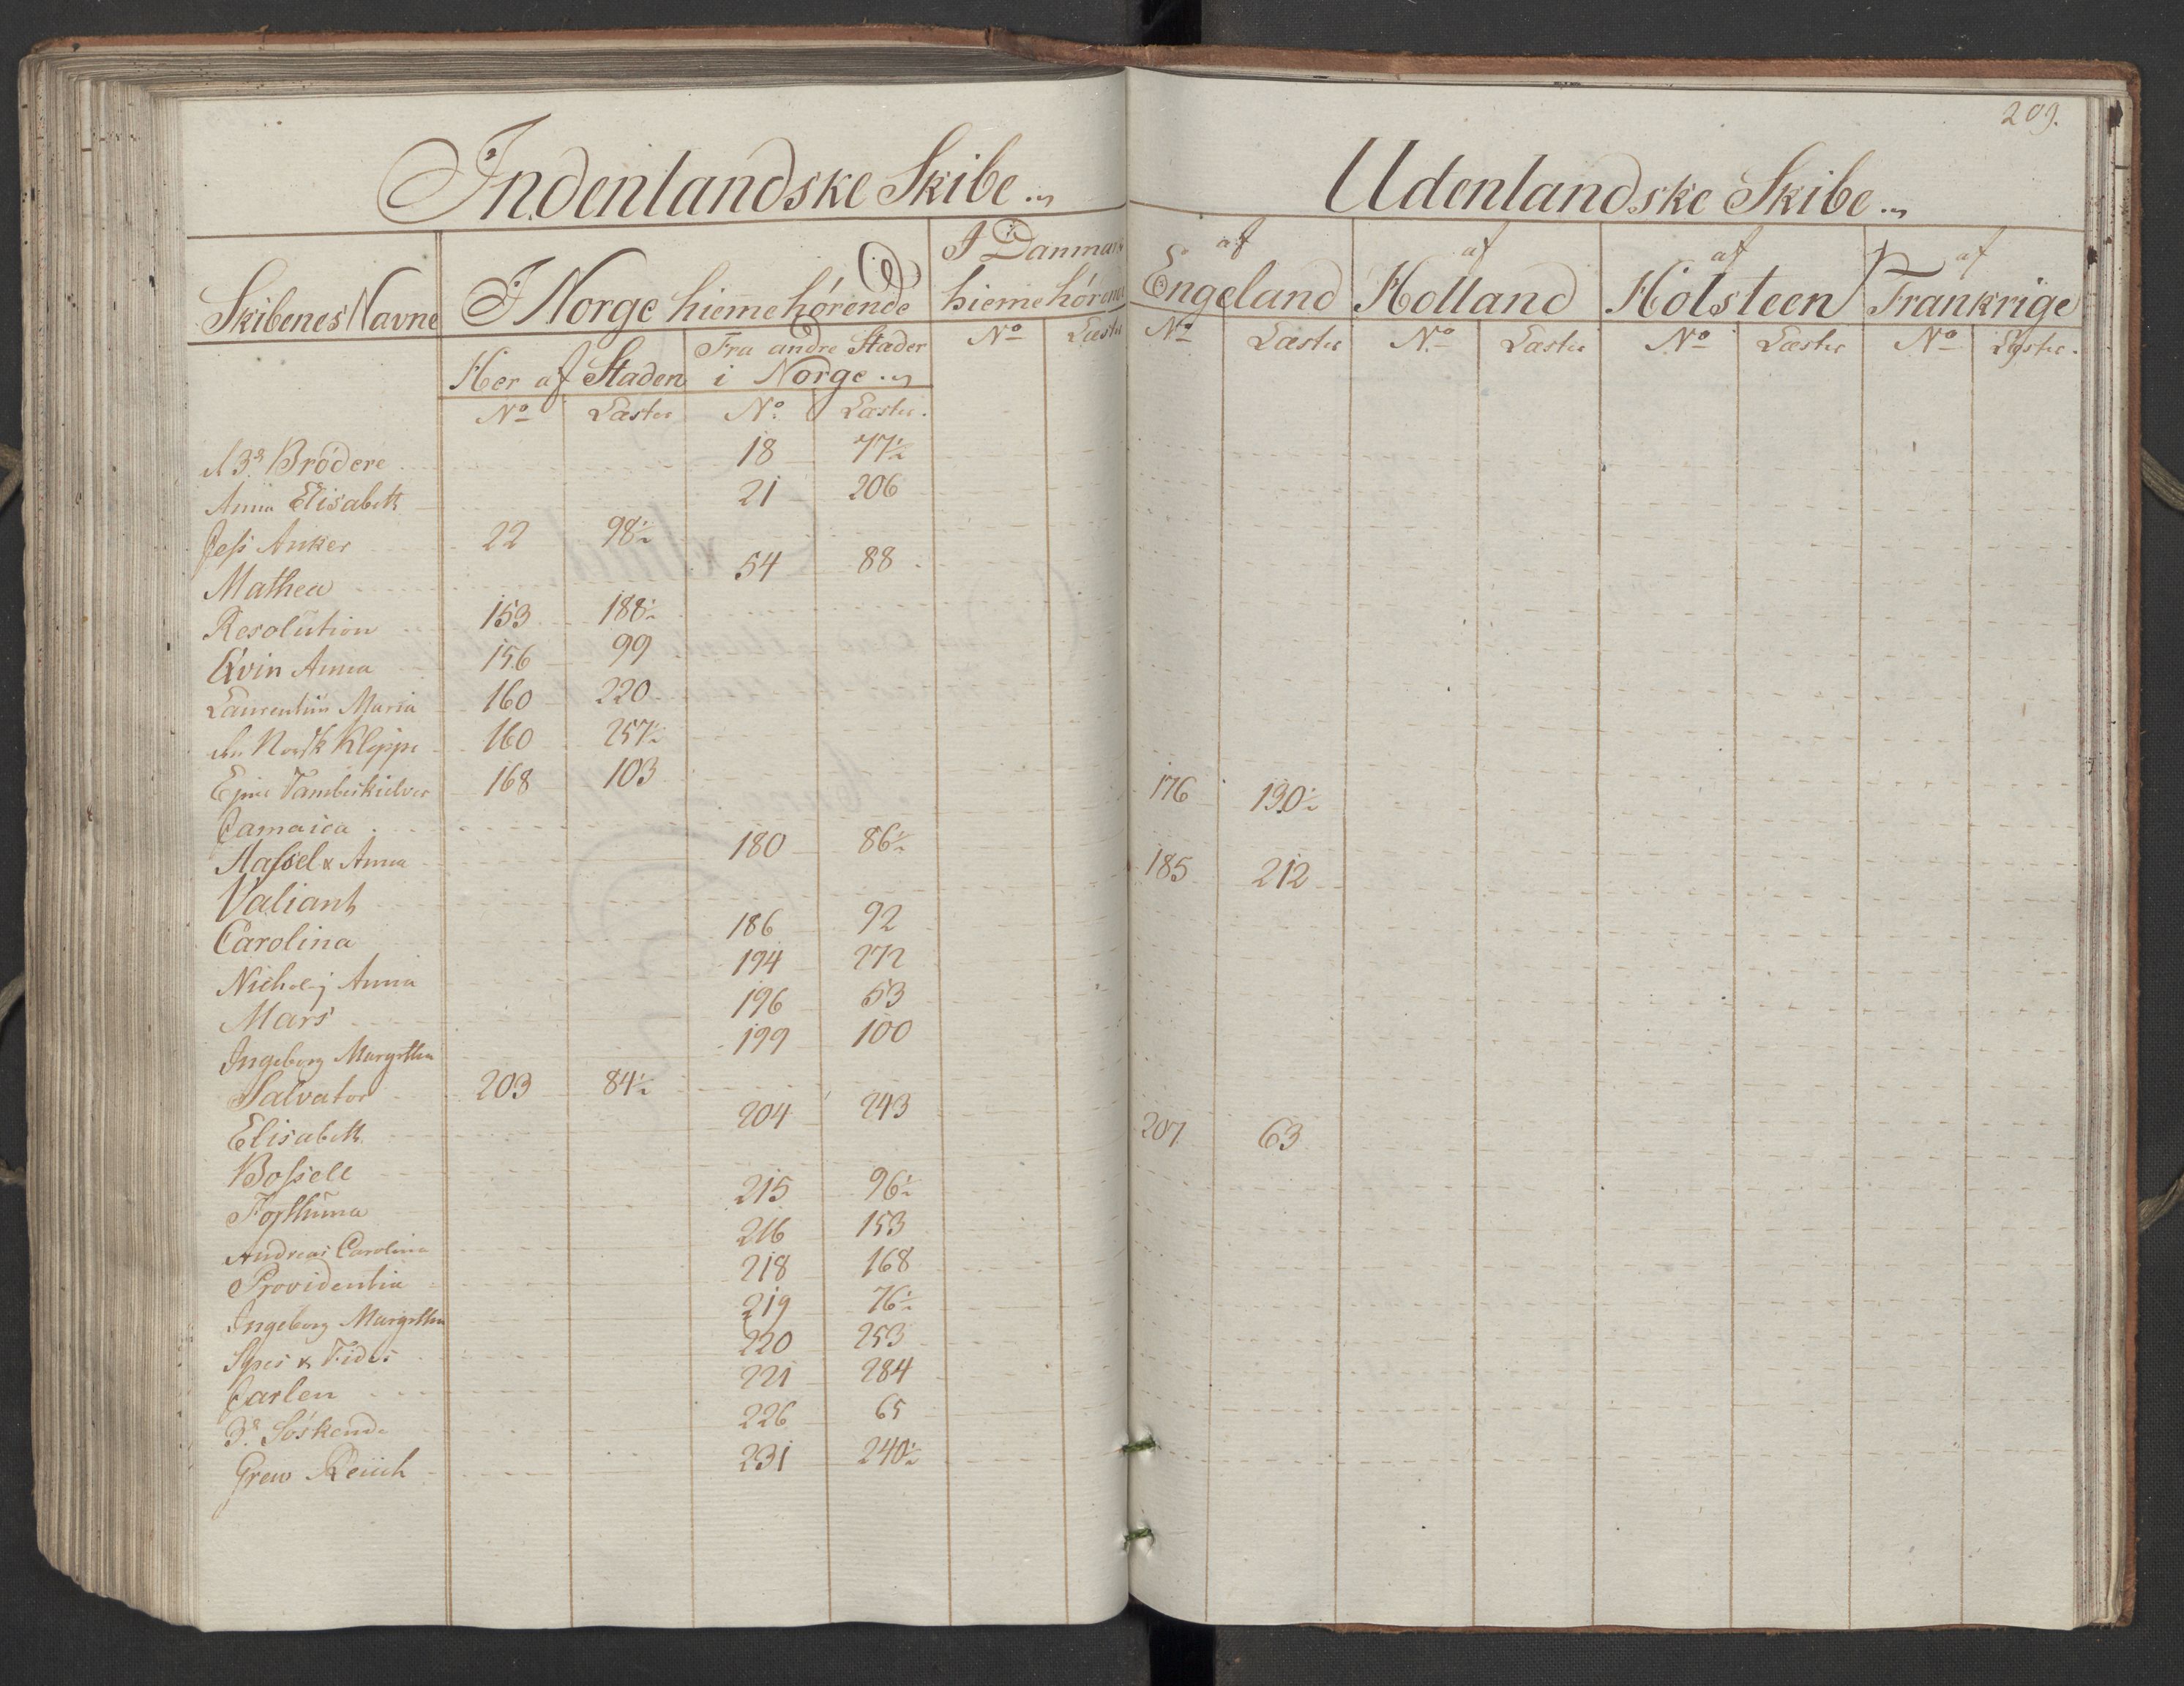 209.
Indenlandske Skibe
Udenlandske Skibe
Skibenes Navne
I Norge hiemehørende
I Danmark hiemehørende
af Engeland
af Holland
af Holsteen
af Frankrige
Her af Staden
Fra andre Stæder i Norge
No Læster No Læster No Læster No Læster No Læster No Læster No Læster
d 3de Brödere 18 77½
Anna Elisabeth 21 206
Jess Anker 22 98½
Mathea 54 88
Resolution 153 188½
Anna 156 99
Laurentius Maria 160 220
den Norsk Klippe 160 257½
Tambeskielver 168 103
Jamaica 176 130½
Hassel & Anna 180 86½
Valiant 185 212
Carolina 186 92
Anna 194 272
Mars 196 53
Ingeborg Margrethe 199 100
Salvator 203 84½
Elisabeth 204 243
Bossell 207 63
Forthuna 215 96½
Andreas Carolina 216 153
Providentia 218 168
Ingeborg Margrethe 219 76½
Spes & Fides 220 253
Jarlen 221 284
3de Söskende 226 65
Grew 231 240½